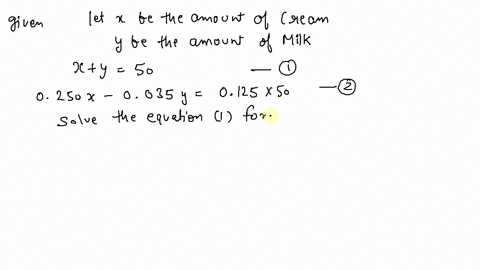 given let x be the amount of Cream
y be the amount of Milk
x+y = 50 — ①
0.250x - 0.035y = 0.125 x 50 — ②
Solve the equation (1) for